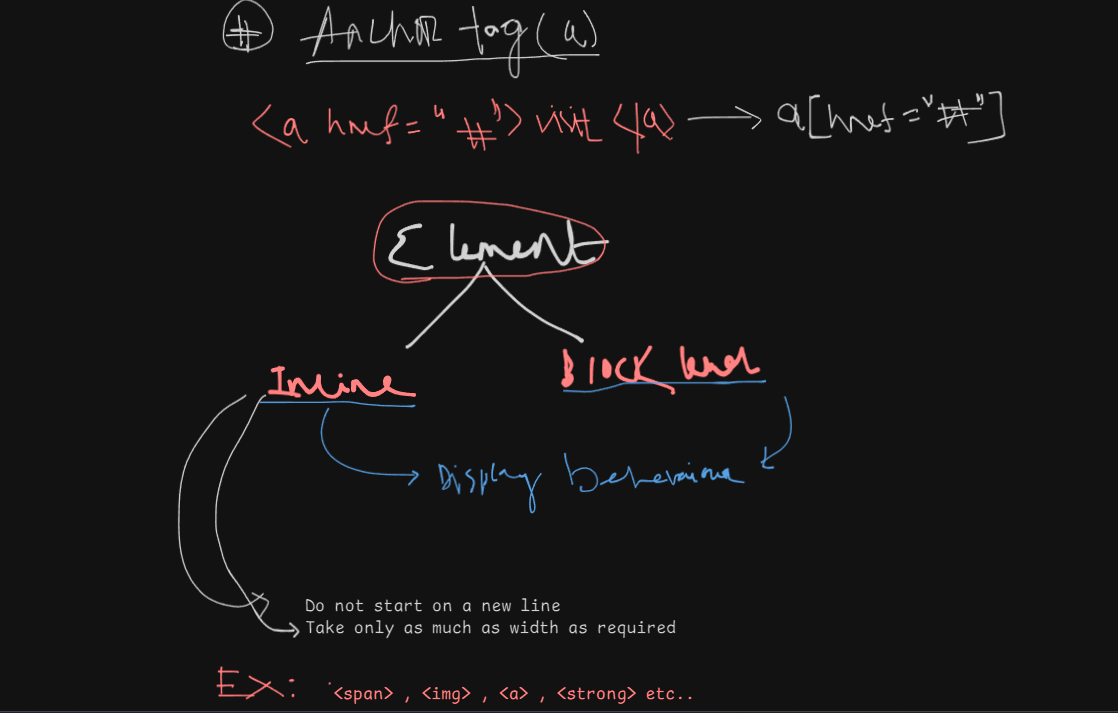 # Anchor tag(a)
<a href="#"> visit </a> → a[href="#"]
Element
Inline Block level
Display behaviour
Do not start on a new line
Take only as much as width as required
Ex: <span> , <img> , <a> , <strong> etc..